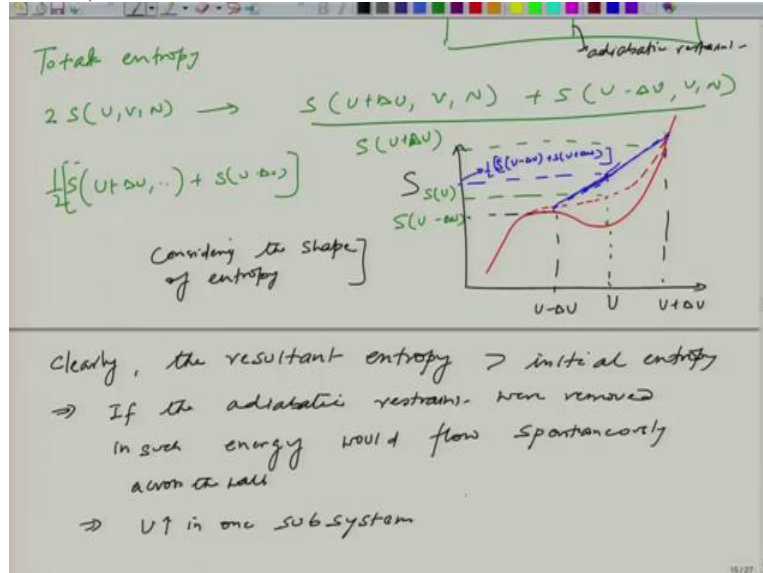 adiabatic restraint -
Total entropy
2 S(U,V,N) → S(U+ΔU, V, N) + S(U-ΔU, V, N)
S(U+ΔU)
½[S(U-ΔU)+S(U+ΔU)]
½[S(U+ΔU,..) + S(U-ΔU)]
S
S(U)
S(U-ΔU)
Considering the shape
of entropy
U-ΔU U U+ΔU
Clearly, the resultant entropy > initial entropy
⇒ If the adiabatic restrains. were removed
in such energy would flow spontaneously
across the wall
⇒ U↑ in one subsystem
15/27